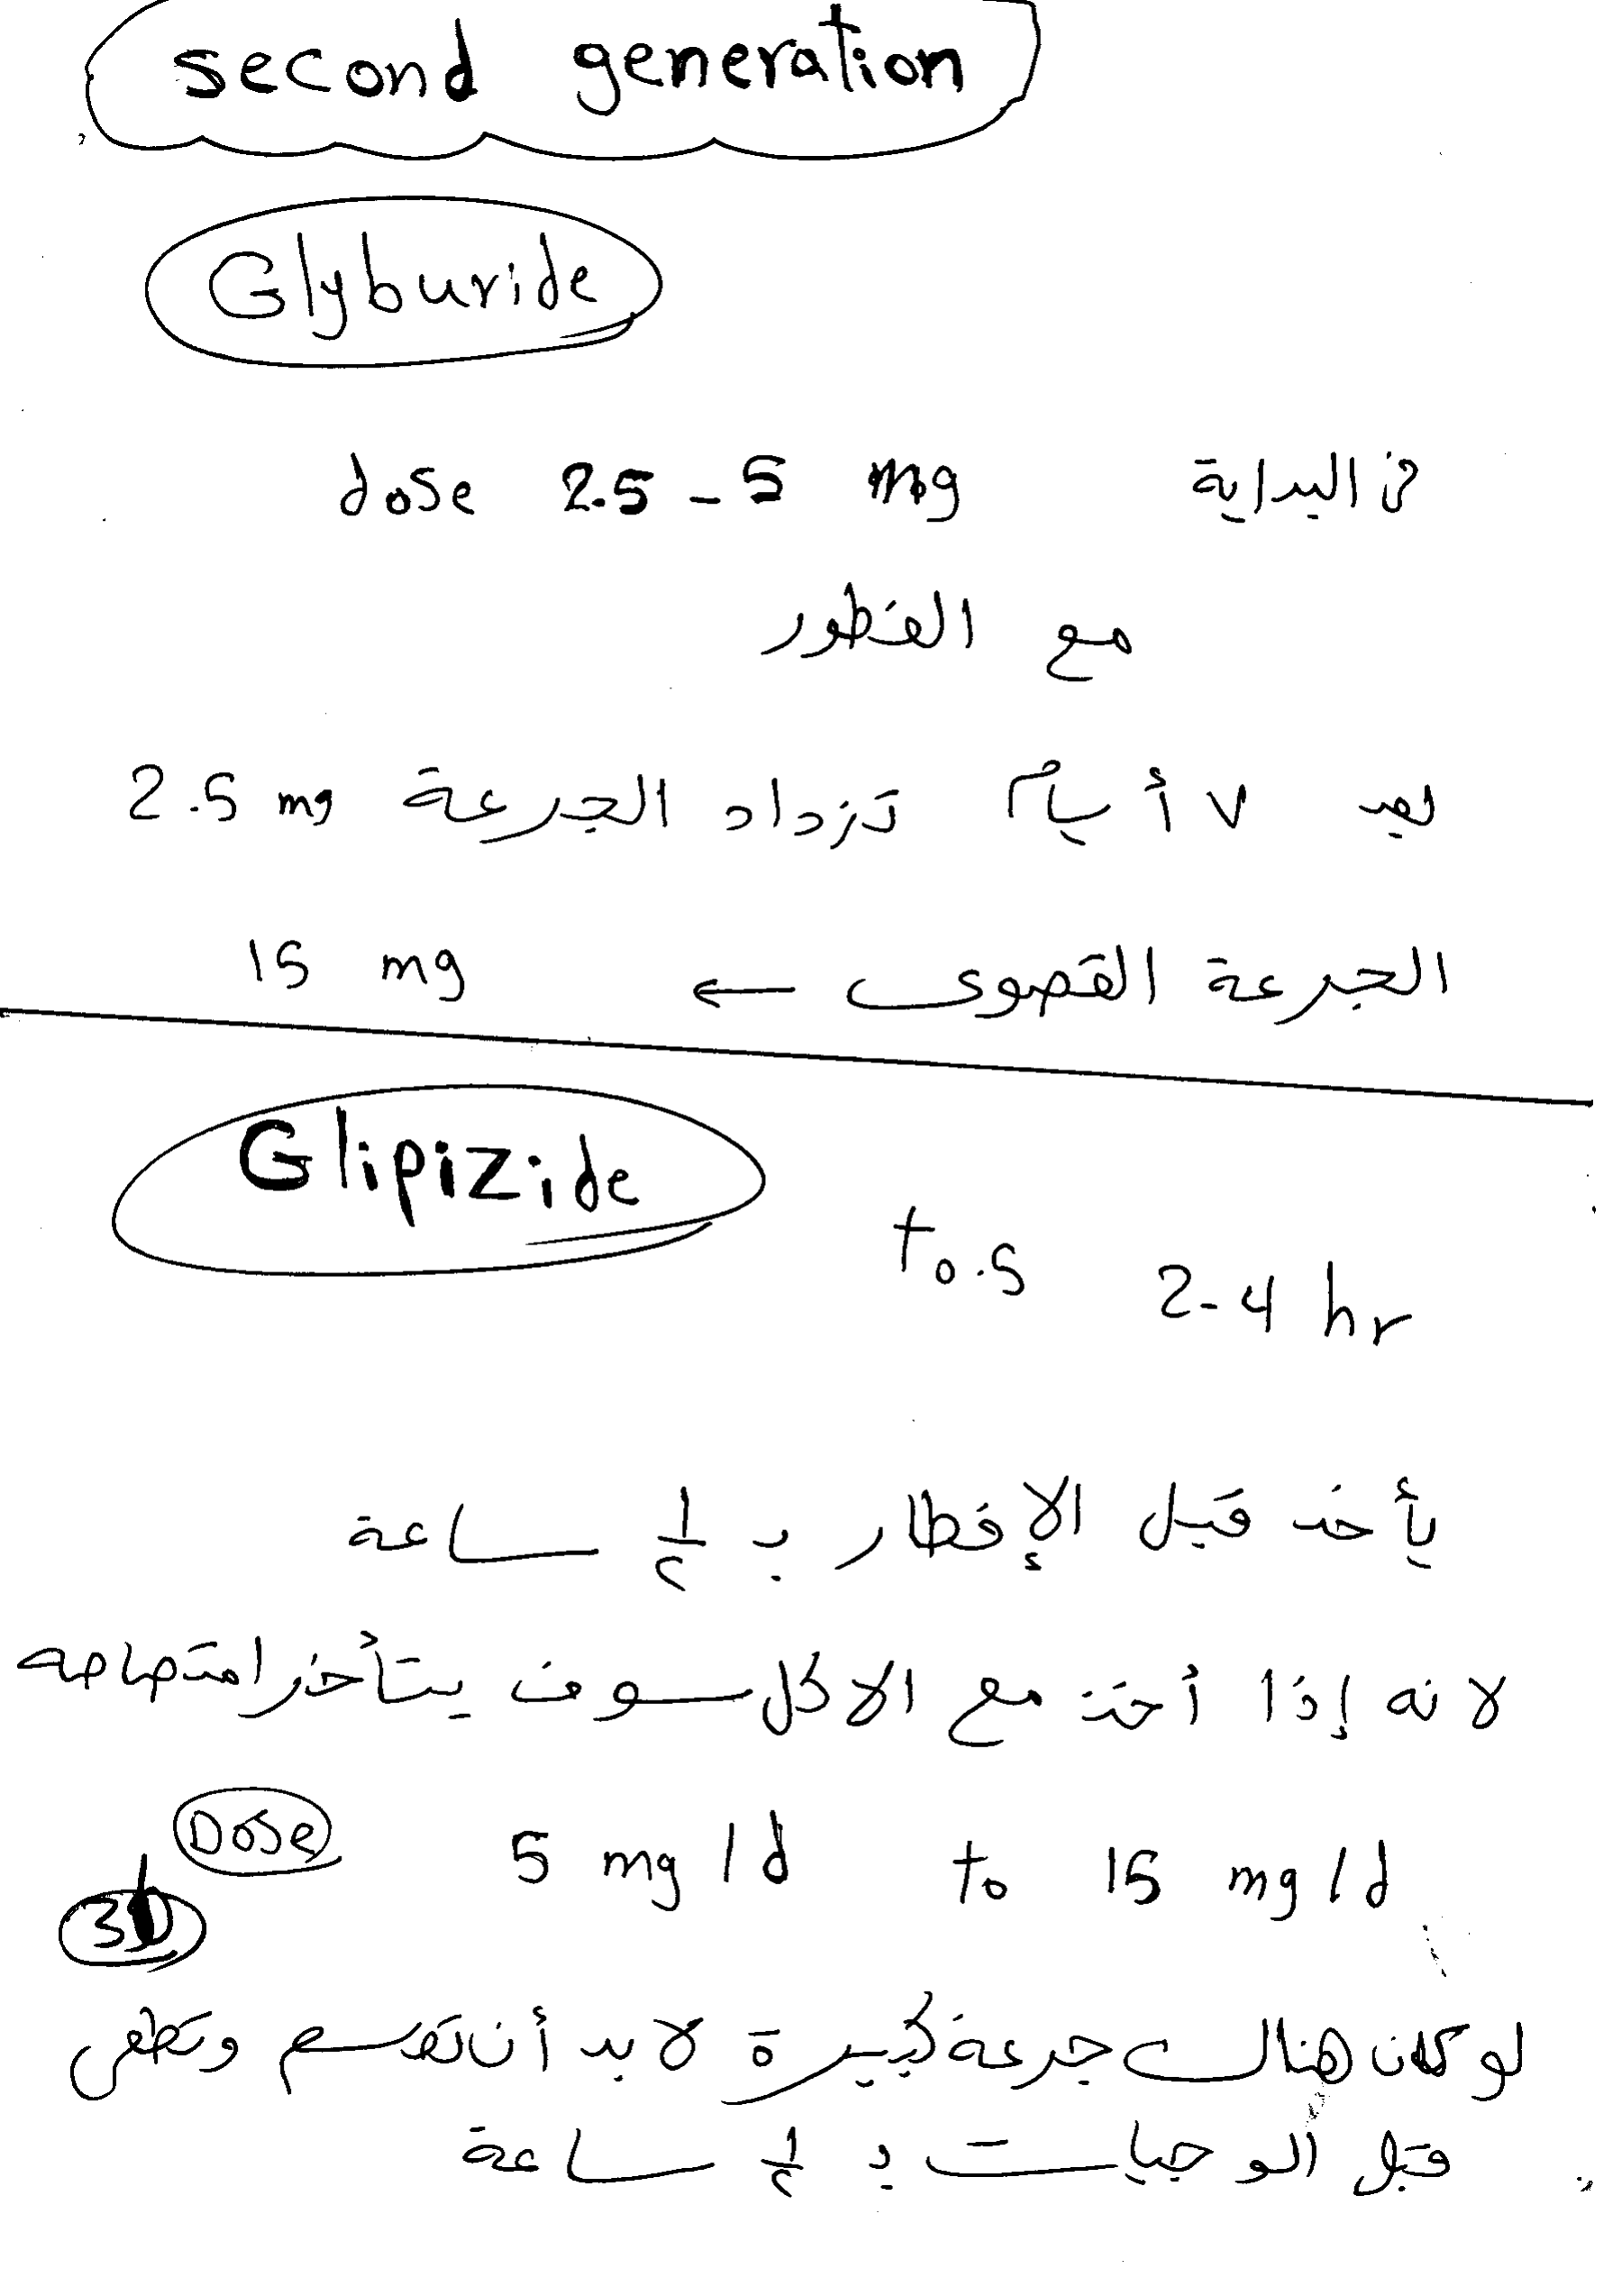 second generation
Glyburide
dose 2.5 - 5 mg في البداية
مع الفطور
بعد ٧ أيام تزداد الجرعة 2.5 mg
الجرعة القصوى ← 15 mg
Glipizide
t0.5 2-4 hr
يأخذ قبل الإفطار بـ ١/٢ ساعة
لانه إذا أخذ مع الاكل سوف يتأخر امتصاصه
Dose 5 mg/d to 15 mg/d
لو كان هناك جرعة كبيرة لا بد أن تقسم وتعطى
قبل الوجبات بـ ١/٢ ساعة